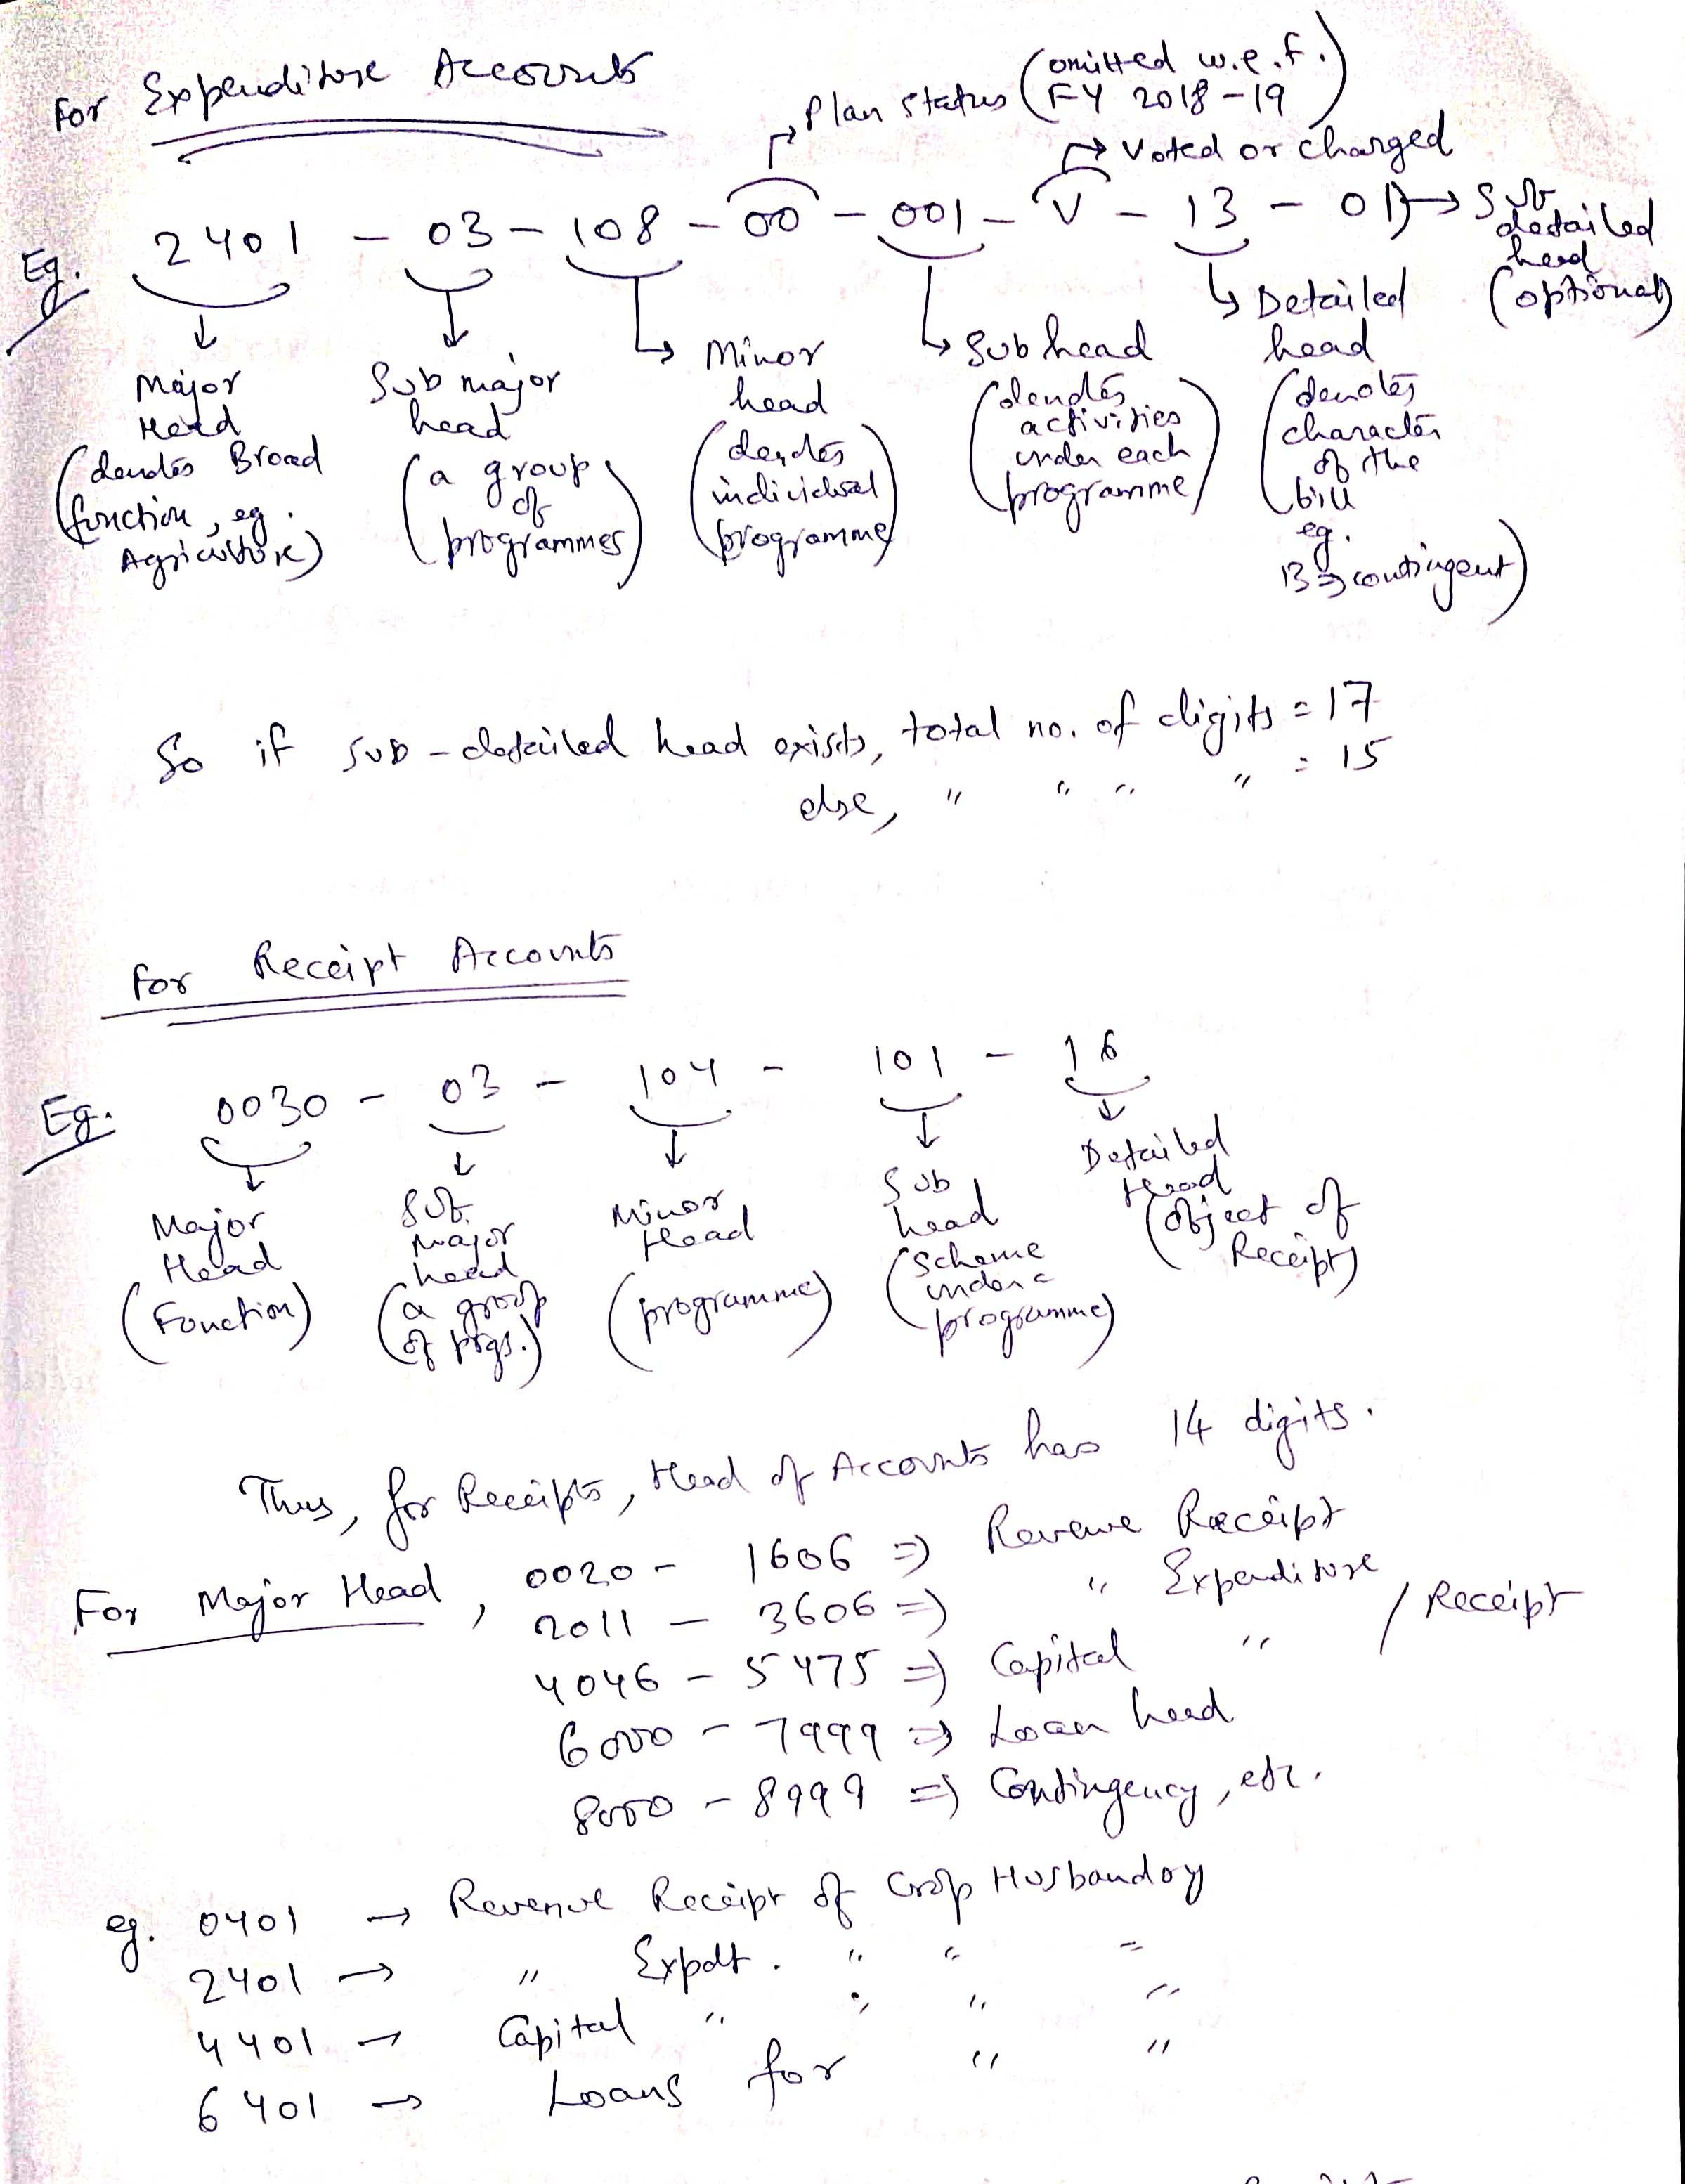 For Expenditure Accounts
Plan Status (omitted w.e.f. FY 2018-19)
Voted or charged
Eg. 2401 - 03 - 108 - 00 - 001 - V - 13 - 01 → Sub detailed head (optional)
Major Head (denotes Broad function, eg. Agriculture)
Sub major head (a group of programmes)
Minor head (denotes individual programme)
Sub head (denotes activities under each programme)
Detailed head (denotes character of the bill eg. 13 ⇒ contingent)
So if sub-detailed head exists, total no. of digits = 17
else, " " " " = 15
For Receipt Accounts
Eg. 0030 - 03 - 104 - 101 - 16
Major Head (Function)
Sub major head (a group of prgs.)
Minor Head (programme)
Sub head (scheme under a programme)
Detailed Head (object of Receipt)
Thus, for Receipts, Head of Accounts has 14 digits.
For Major Head, 0020 - 1606 ⇒ Revenue Receipt
2011 - 3606 ⇒ " Expenditure
4046 - 5475 ⇒ Capital " / Receipt
6000 - 7999 ⇒ Loan head
8000 - 8999 ⇒ Contingency, etc.
eg. 0401 → Revenue Receipt of Crop Husbandry
2401 → " Expdt. " " "
4401 → Capital " " " "
6401 → Loans for " "